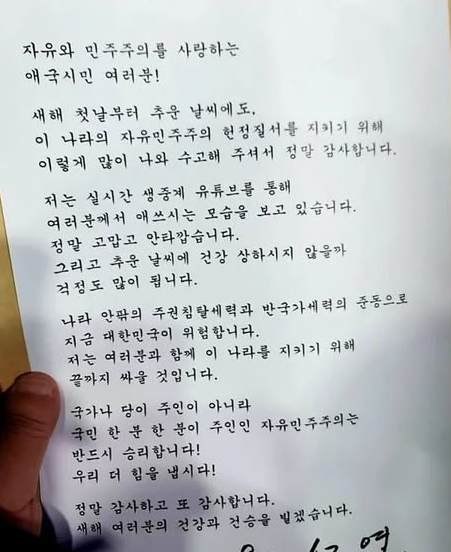 자유와 민주주의를 사랑하는
애국시민 여러분!
새해 첫날부터 추운 날씨에도,
이 나라의 자유민주주의 헌정질서를 지키기 위해
이렇게 많이 나와 수고해 주셔서 정말 감사합니다.
저는 실시간 생중계 유튜브를 통해
여러분께서 애쓰시는 모습을 보고 있습니다.
정말 고맙고 안타깝습니다.
그리고 추운 날씨에 건강 상하시지 않을까
걱정도 많이 됩니다.
나라 안팎의 주권침탈세력과 반국가세력의 준동으로
지금 대한민국이 위험합니다.
저는 여러분과 함께 이 나라를 지키기 위해
끝까지 싸울 것입니다.
국가나 당이 주인이 아니라
국민 한 분 한 분이 주인인 자유민주주의는
반드시 승리합니다!
우리 더 힘을 냅시다!
정말 감사하고 또 감사합니다.
새해 여러분의 건강과 건승을 빌겠습니다.